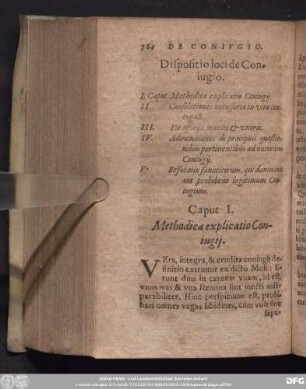 764 DE CONIVGIO.
Dispositio loci de Con-
iugio.
I. Caput Methodica explicatio Coniugij.
II. Consolationes necessariæ in vita con-
iugali.
III. De officijs mariti & vxoris.
IV. Admonitiones de præcipuis quæstio-
nibus pertinentibus ad naturam
Coniugij.
V. Refutatio fanaticorum, qui damnant
aut prohibent legitimum Con-
iugium.
Caput I.
Methodica explicatio Con-
iugij.
VEra, integra, & erudita coniugij de-
finitio extruitur ex dicto Mosi: E-
runt duo in carnem vnam, id est,
vnus mas & vna foemina sint iuncti inse-
parabiliter. Hinc perspicuum est, prohi-
beri omnes vagas libidines, cùm